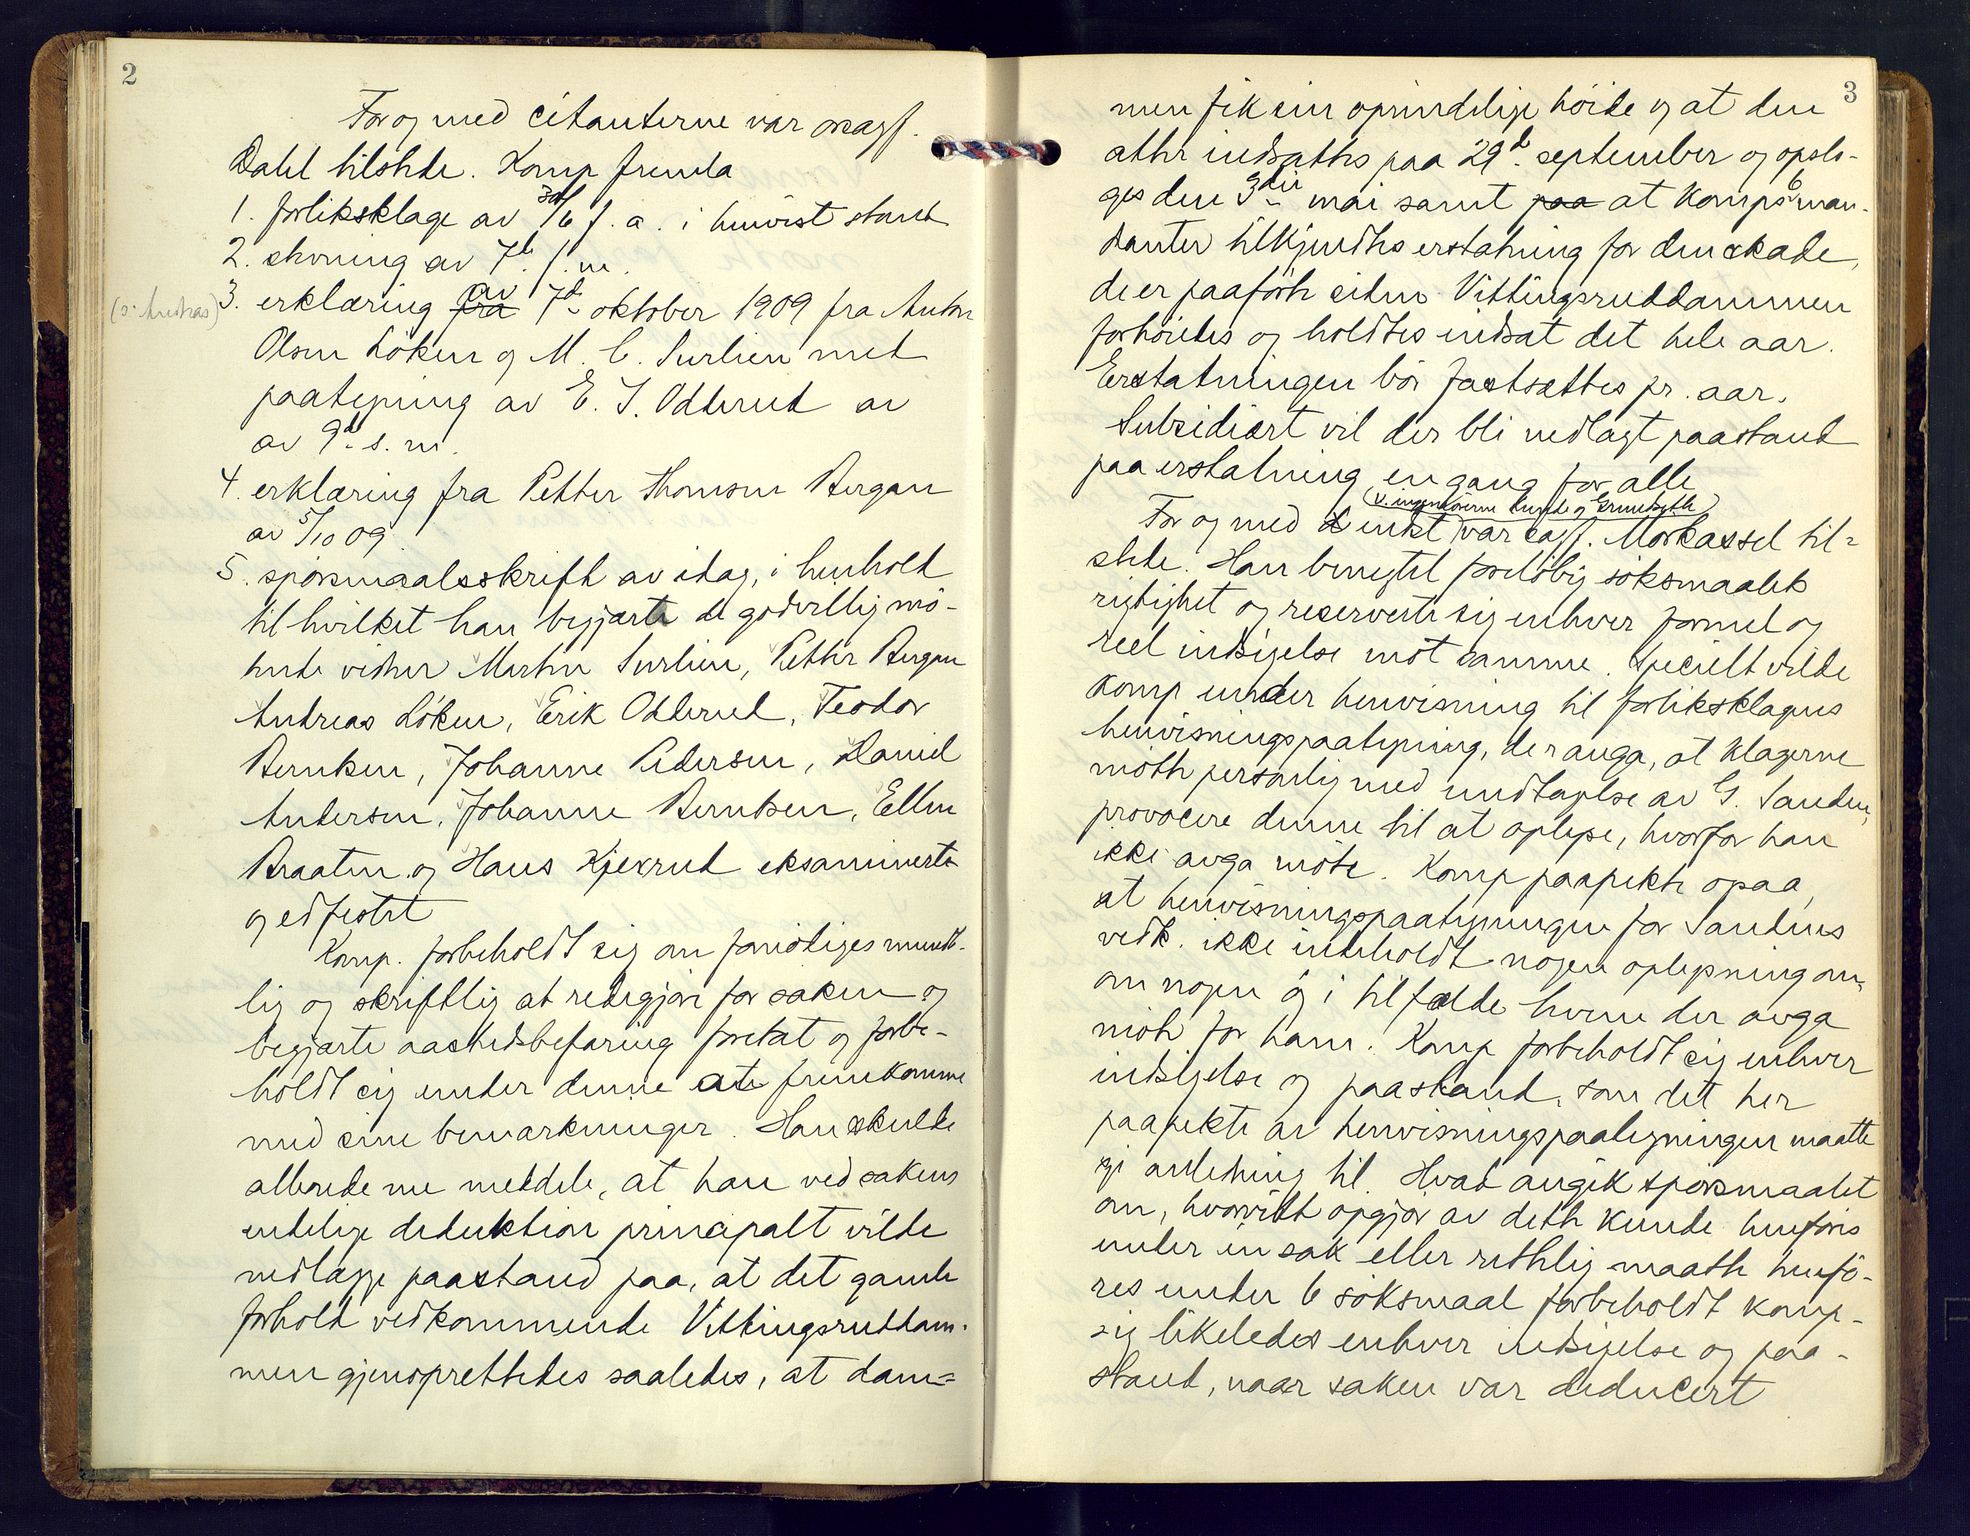 2
For og med citanterne var osagf.
Dahl tilstede. Komp fremla
1. forliksklage av 30/6 f. a. i henvist stand
2. stevning av 7d. f. m.
(o: Andreas) 3. erklæring fra av 7d oktober 1909 fra Anton
Olsen Löken og M. C. Surlien med
paategning av E. I. Odderud av
av 9d s. m.
4. erklæring fra Petter Thomsen Bergan
av 5/10 09
5. spörsmaalsskrift av idag, i henhold
til hvilket han begjærte de godvillig mö-
tende vidner Martin Surlien, Petter Bergan
Andreas Löken, Erik Odderud, Teodor
Berntsen, Johanne Pedersen, Daniel
Andersen, Johanne Berntsen, Ellen
Braaten og Hans Kjexrud eksaminerte
og edfestet
Komp. forbeholdt sig om fornödiges mundt-
lig og skriftlig at redegjöre for saken og
begjærte aastedsbefaring foretat og forbe-
holdt sig under denne at fremkomme
med sine bemerkninger. Han skulde
allerede nu meddele, at han ved sakens
endelige deduktion principalt vilde
nedlægge paastand paa, at det gamle
forhold vedkommende Vittingsruddam-
men gjenoprettedes saaledes, at dam=
3
men fik sin oprindelige höide og at den
atter indsattes paa 29d. september og opslo-
ges den 3die mai samt paa at Komps 6 man-
danter tilkjendtes erstatning for den skade,
de er paafört siden Vittingsruddammen
forhöiedes og holdtes indsat det hele aar.
Erstatningen bör fastsættes pr. aar.
Subsidiært vil der bli nedlagt paastand
paa erstatning en gang for alle
(v. ingeniörerne &
For og med indst var sagf. Morkassel til=
stede. Han benegtet foreløbig söksmaalets
rigtighet og reserverte sig enhver formel og
reel indsigelse mot samme. Specielt vilde
Komp under henvisning til forliksklagens
henvisningspaategning, der anga, at klagerne
mötte personlig med undtagelse av G. Sanden,
provocere denne til at oplyse, hvorfor han
ikke anga möte. Komp paapekte ogsaa,
at henvisningspaategningen for Sandens
vedk. ikke indeholdt nogen oplysning om,
om nogen og i tilfælde hvem der avga
möte for ham. Komp forbeholdt sig enhver
indsigelse og paastand, som det her
paapekte av henvisningspaategningen maatte
gi anledning til. Hvad angik spörsmaalet
om, hvorvidt opgjör av dette kunde henföres
under en sak eller rettelig maatte henfö-
res under 6 söksmaal forbeholdt komp-
sig likeledes enhver indsigelse og paa-
stand, naar saken var deducert